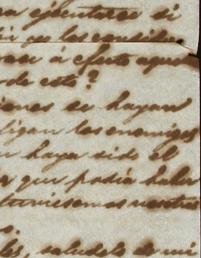 ejecutarse si
los consider
á efecto aque
de esto?
se hayan
ligan los enemigos
haya sido el
que podia haber
tuviesemos nuestros
saludelo de mi